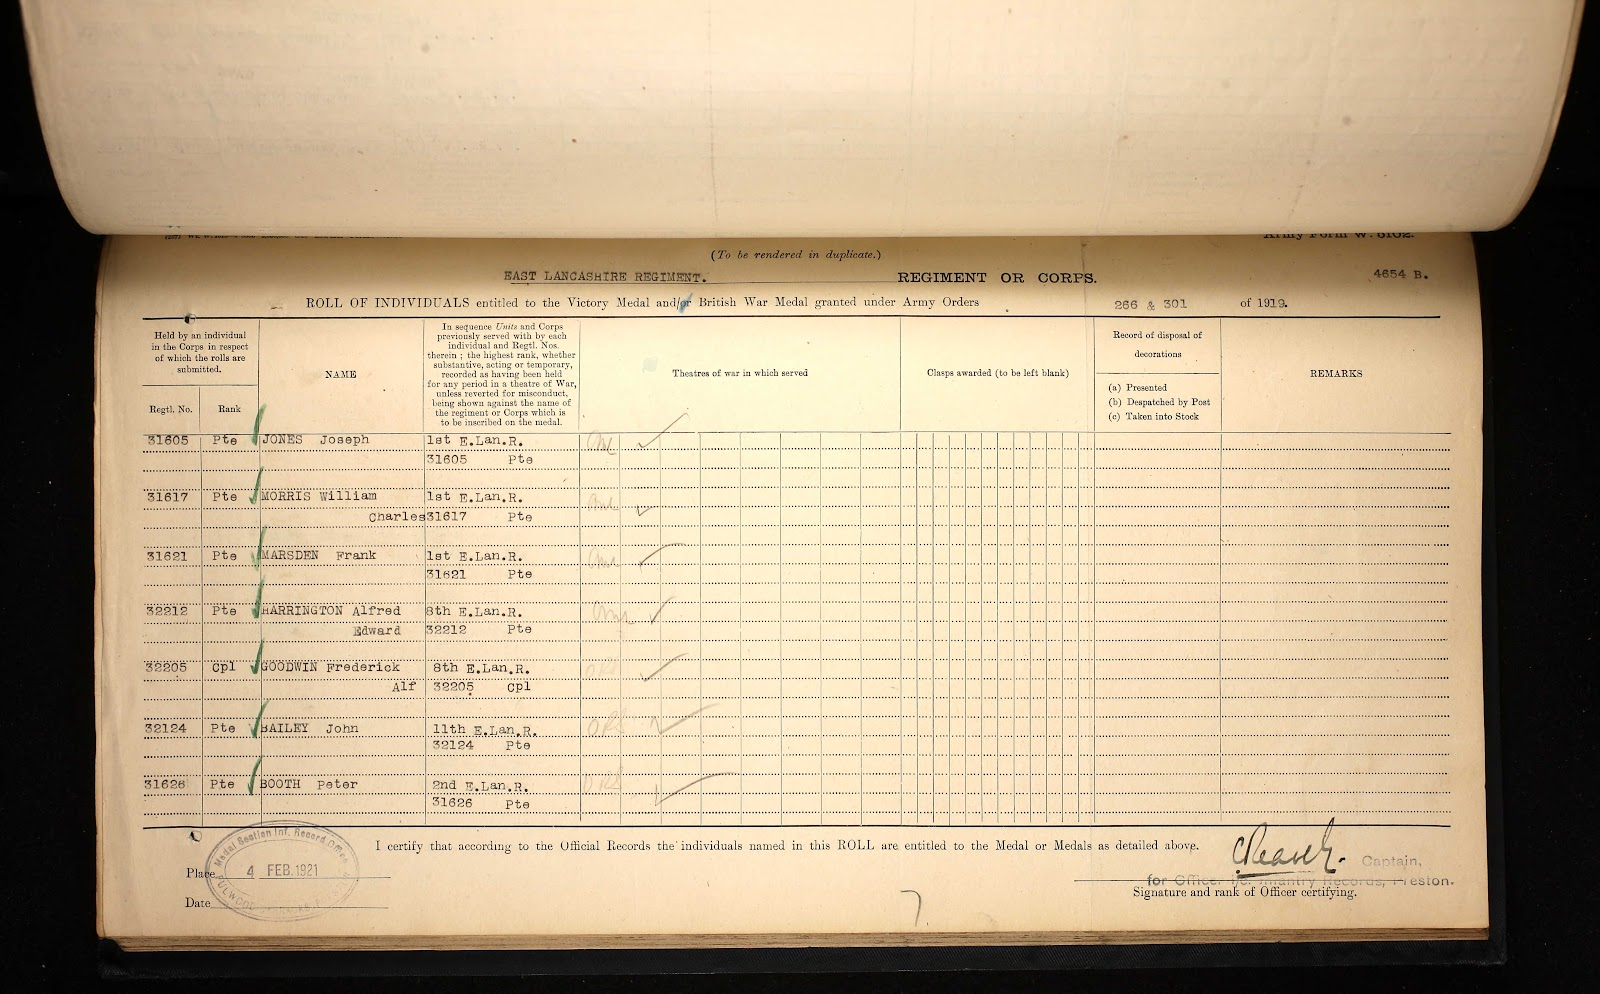 Army Form W. 5102.
(To be rendered in duplicate.)
EAST LANCASHIRE REGIMENT. REGIMENT OR CORPS. 4654 B.
ROLL OF INDIVIDUALS entitled to the Victory Medal and/or British War Medal granted under Army Orders 266 & 301 of 1919.
Held by an individual
in the Corps in respect
of which the rolls are
submitted.
Regtl. No. Rank
NAME
In sequence Units and Corps
previously served with by each
individual and Regtl. Nos.
therein ; the highest rank, whether
substantive, acting or temporary,
recorded as having been held
for any period in a theatre of War,
unless reverted for misconduct,
being shown against the name of
the regiment or Corps which is
to be inscribed on the medal.
Theatres of war in which served
Clasps awarded (to be left blank)
Record of disposal of
decorations
(a) Presented
(b) Despatched by Post
(c) Taken into Stock
REMARKS
31605 Pte JONES Joseph 1st E.Lan.R.
31605 Pte
31617 Pte MORRIS William 1st E.Lan.R.
Charles 31617 Pte
31621 Pte MARSDEN Frank 1st E.Lan.R.
31621 Pte
32212 Pte HARRINGTON Alfred 8th E.Lan.R.
Edward 32212 Pte
32205 Cpl GOODWIN Frederick 8th E.Lan.R.
Alf 32205 Cpl
32124 Pte BAILEY John 11th E.Lan.R.
32124 Pte
31626 Pte BOOTH Peter 2nd E.Lan.R.
31626 Pte
I certify that according to the Official Records the individuals named in this ROLL are entitled to the Medal or Medals as detailed above.
Medal Section Inf. Record Office
4 FEB. 1921
Place
Date
Captain,
for Officer i/c. Infantry Records, Preston.
Signature and rank of Officer certifying.